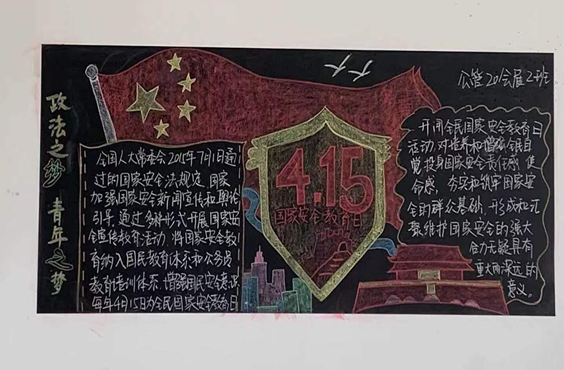 政法之梦 青年之梦
公管20会展2班
全国人大常委会2015年7月1日通
过的国家安全法规定,国家
加强国家安全新闻宣传和舆论
引导,通过多种形式开展国家安
全宣传教育活动,将国家安全教
育纳入国民教育体系和公务员
教育培训体系,增强国民安全意识
每年4月15日为全民国家安全教育日
4.15
国家安全教育日
开闭全民国家安全教育日
活动,对培养和增强全民自
觉投身国家安全责任感、使
命感,夯实和筑牢国家安
全的群众基础,形成和汇
聚维护国家安全的强大
合力无疑具有
重大而深远的
意义。